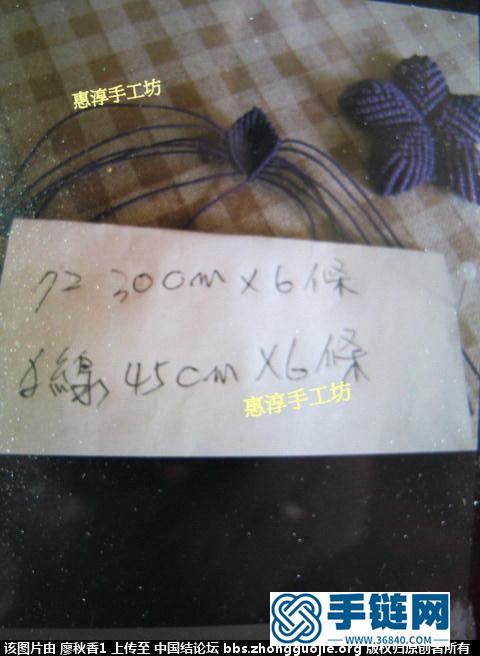 惠淳手工坊
72 30cm X 6 條
線 45cm X6 條
惠淳手工坊
手链网
www.36840.com
该图片由 廖秋香1 上传至 中国结论坛 bbs.zhongguojie.org 版权归原创者所有